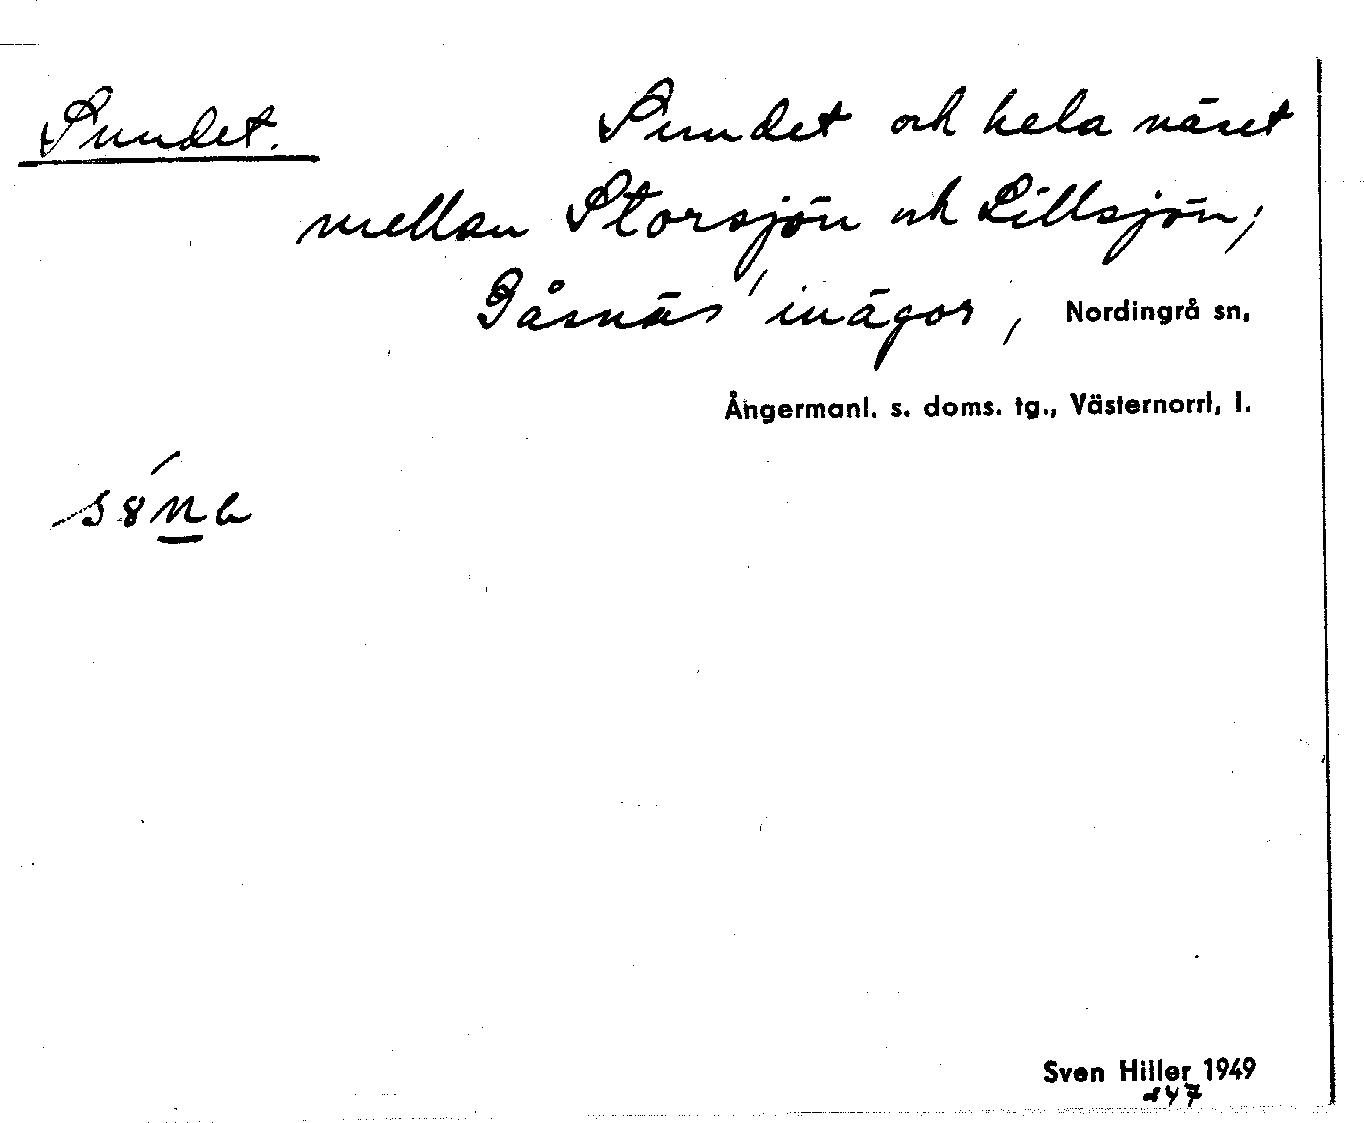 Sundet. Sundet och hela näset
mellan Storsjön och Lillsjön;
Gåsnäs' inägor, Nordingrå sn,
Ångermanl. s. doms. tg., Västernorrl, l.
Sven Hiller 1949